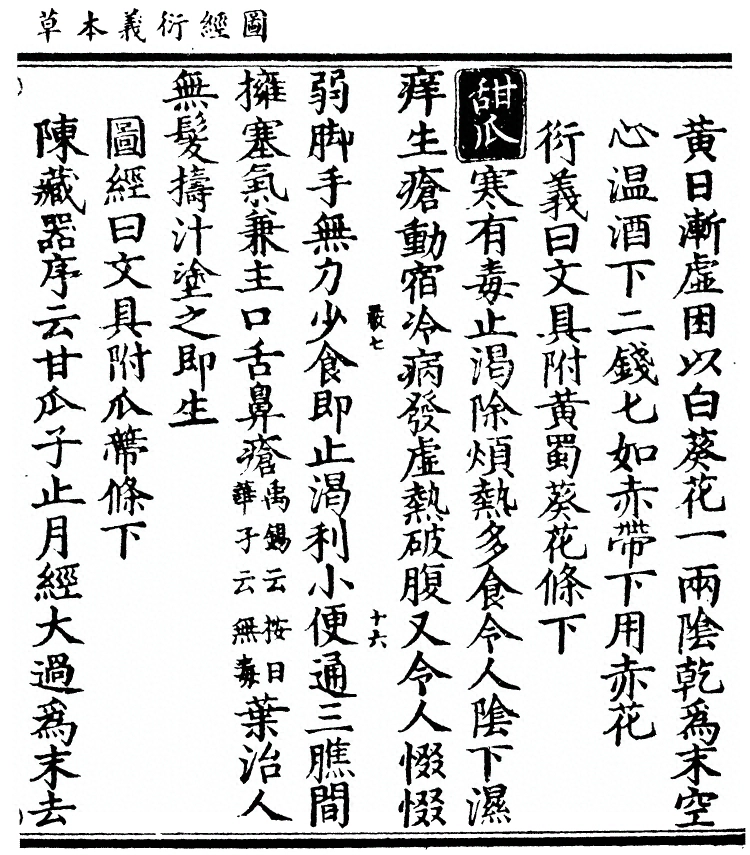 圖經衍義本草
黃日漸虛困以白葵花一兩陰乾爲末空
心温酒下二錢七如赤帶下用赤花
衍義曰文具附黃蜀葵花條下
甜瓜寒有毒止渴除煩熱多食令人陰下濕
痒生瘡動宿冷病發虛熱破腹又令人惙惙
嚴七 十六
弱脚手無力少食即止渴利小便通三膲間
擁塞氣兼主口舌鼻瘡禹錫云按日華子云無毒葉治人
無髮擣汁塗之即生
圖經曰文具附瓜蔕條下
陳藏器序云甘瓜子止月經大過爲末去